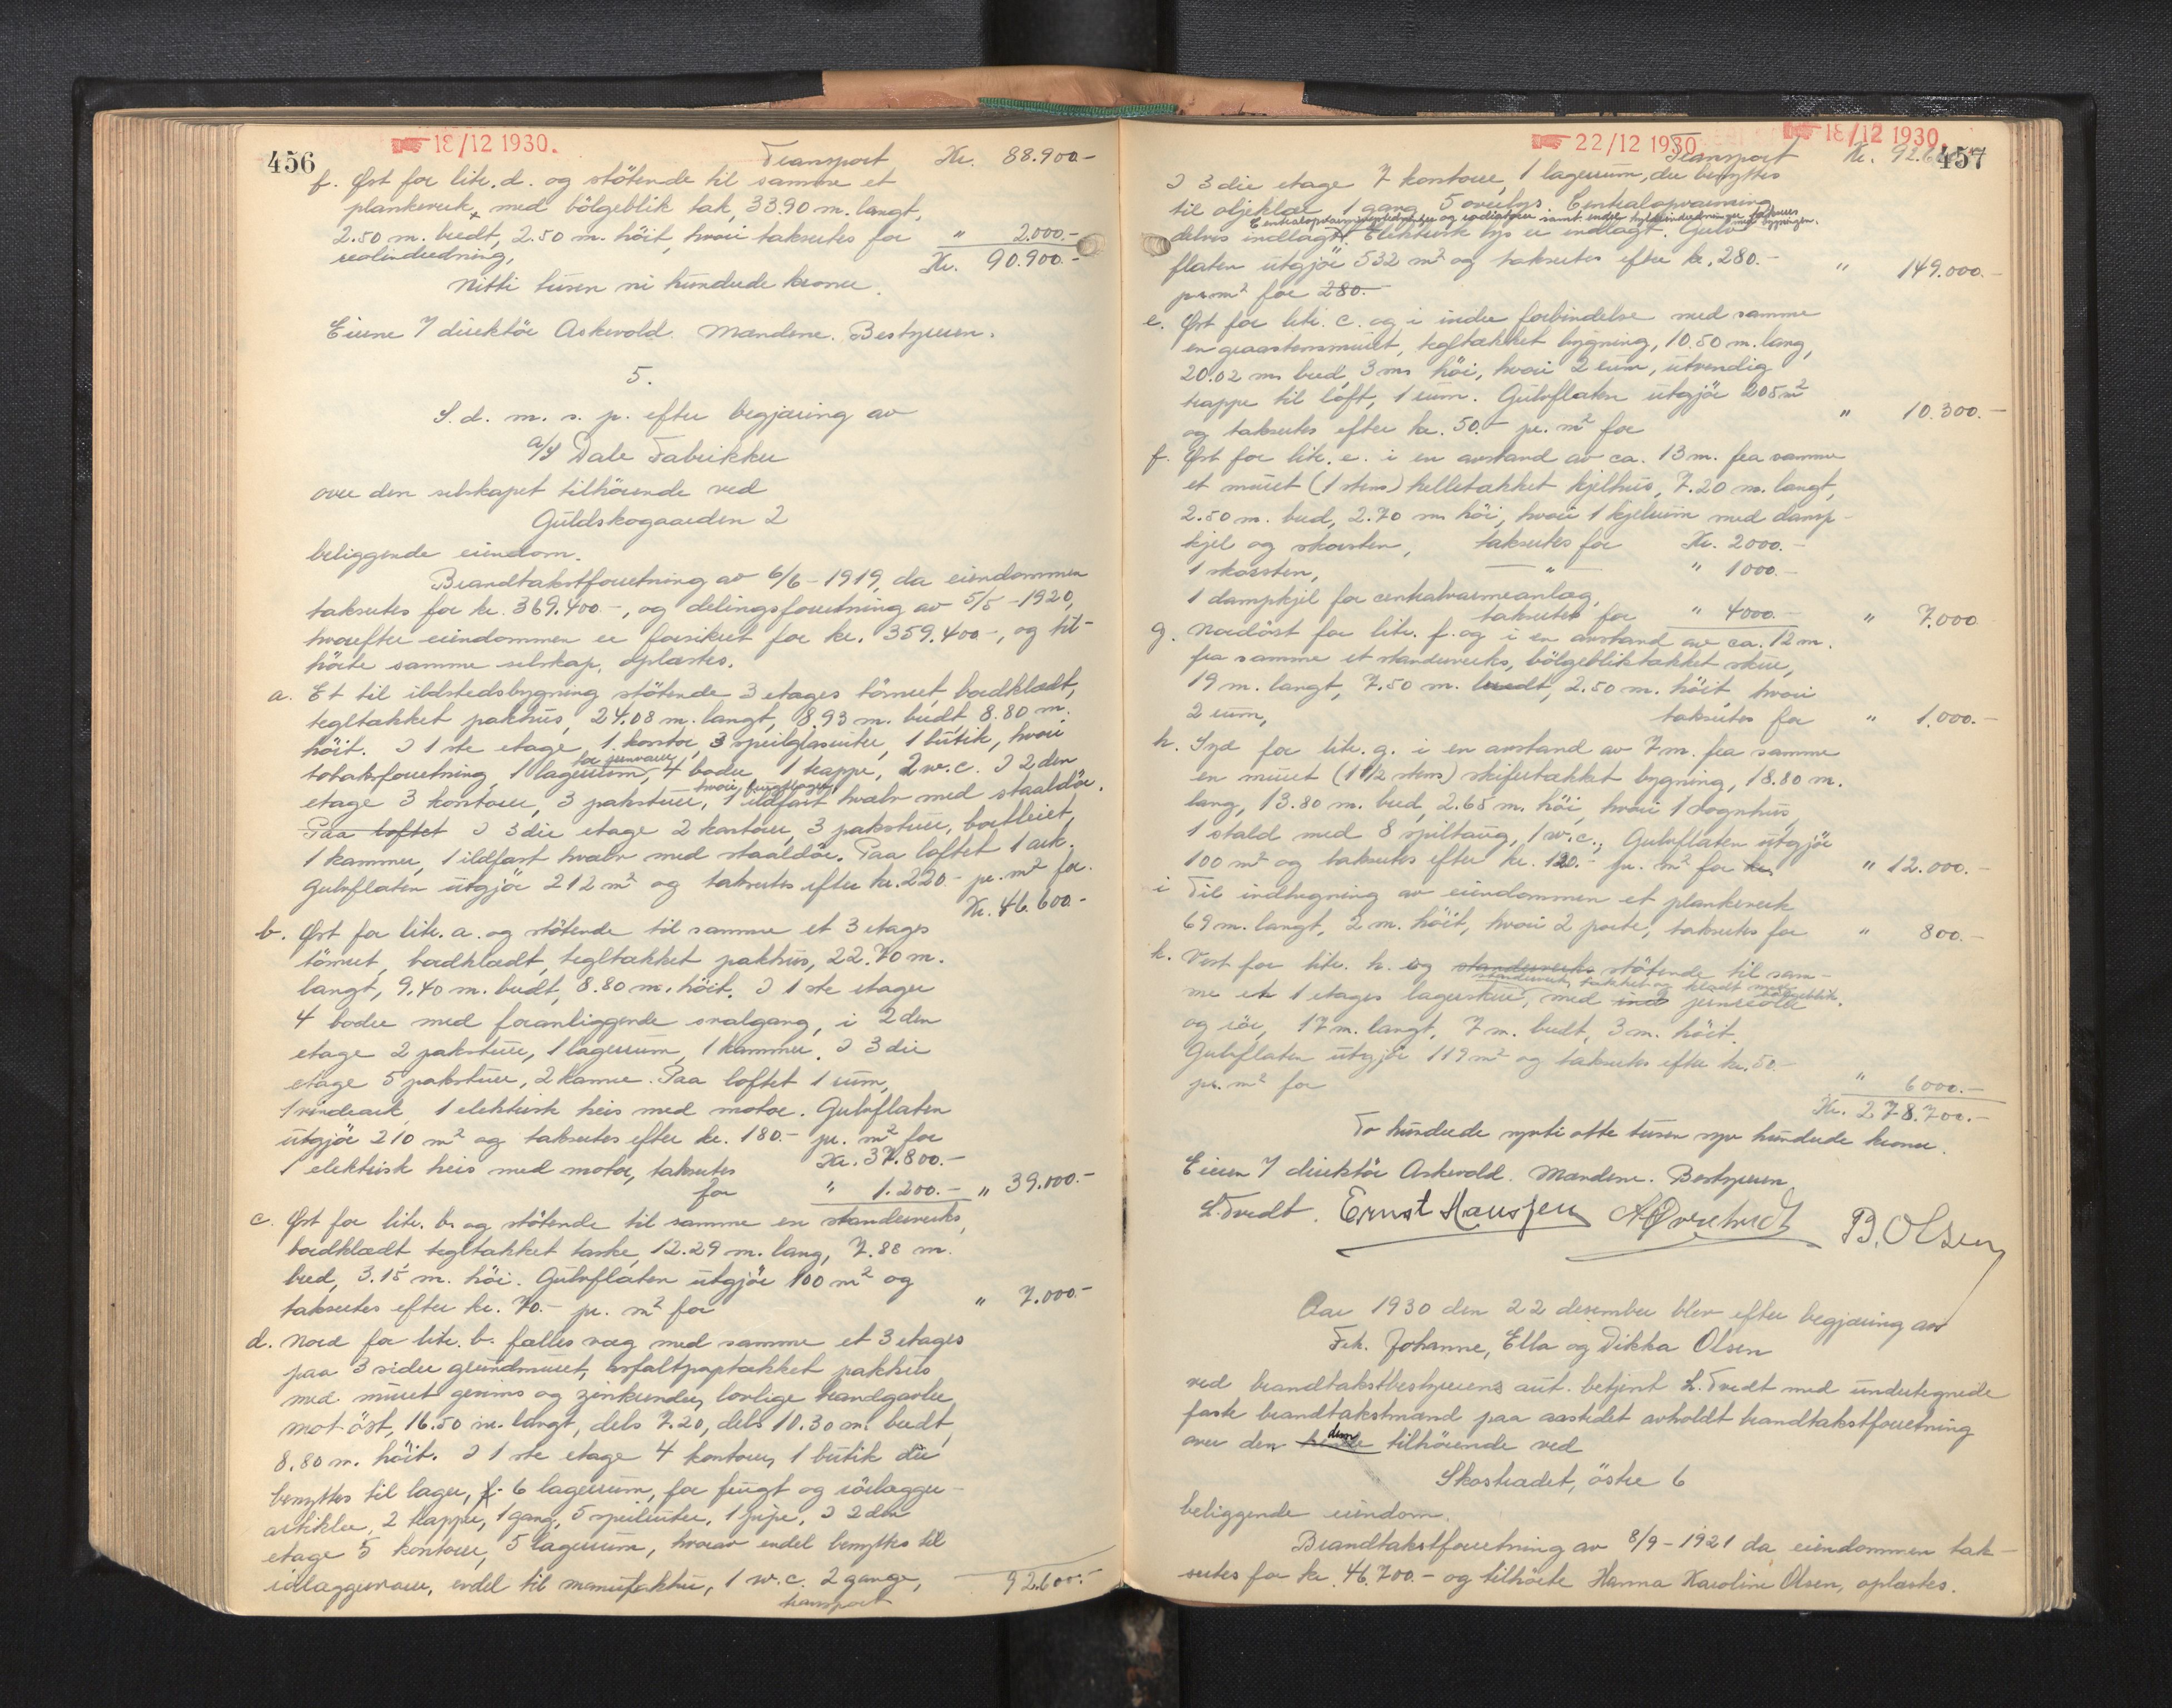 456
18/12 1930.
Transport Kr. 88.900.-
f. Øst for litr. d. og stötende til samme et
plankeverk, med bölgeblik tak, 33.90 m. langt,
2.50 m. bredt, 2.50 m. höit, hvori takseres for " 2.000.-
reolindredning, Kr. 90.900.-
Nitti tusen ni hundrede kroner.
Eieren v/ direktör Askevold. Mændene. Bestyreren.
5.
S. d. m. s. p. efter begjæring av
A/S Dale Fabrikker
over den selskapet tilhörende ved
Guldskogaarden 2
beliggende eiendom.
Brandtakstforretning av 6/6-1919, da eiendommen
taksertes for kr. 369.400.-, og delingsforretning av 5/5-1920,
hvorefter eiendommen er forsikret for kr. 359.400.-, og til-
hörte samme selskap, oplæstes.
a. Et til ildstedsbygning stötende 3 etages tömret, bordklædt,
tegltækket pakhus, 24.08 m. langt, 8.93 m. bredt, 8.80 m.
höit. I 1ste etage, 1 kontor, 3 speilglasruter, 1 butik, hvori
for jernvarer
totalforretning, 1 lagerrum, 4 boder, 1 trappe, 2 w.c. I 2den
etage 3 kontorer, 3 pakstuer, 1 ildfast hvælv med staaldör.
Paa loftet I 3die etage 2 kontorer, 3 pakstuer,
1 kammer, 1 ildfast hvælv med staaldör. Paa loftet 1 ark.
Gulvflaten utgjör 212 m² og takseres efter kr. 220.- pr. m² for
Kr. 46.600.-
b. Øst for litr. a. og stötende til samme et 3 etages
tömret, bordklædt, tegltækket pakhus, 22.70 m.
langt, 9.40 m. bredt, 8.80 m. höit. I 1ste etage
4 boder med foranliggende svalgang, i 2den
etage 2 pakstuer, 1 lagerrum, 1 kammer. I 3die
etage 5 pakstuer, 2 kamre. Paa loftet 1 rum,
1 vindeark, 1 elektrisk heis med motor. Gulvflaten
utgjör 210 m² og takseres efter kr. 180.- pr. m² for
Kr. 37.800.-
1 elektrisk heis med motor, takseres
for " 1.200.- " 39.000.-
c. Øst for litr. b. og stötende til samme en standerverks,
bordklædt, tegltækket taske, 12.29 m. lang, 7.88 m.
bred, 3.15 m. höi. Gulvflaten utgjör 100 m² og
takseres efter kr. 70.- pr. m² for " 7.000.-
d. Nord for litr. b. fælles væg med samme et 3 etages
paa 3 sider grundmuret, asfaltpaptækket pakhus
med muret gesims og zinkrender, lovlige brandgavler
mot öst, 16.50 m. langt, dels 7.20, dels 10.30 m. bredt,
8.80 m. höit. I 1ste etage 4 kontorer, 1 butik der
benyttes til lager, 6 lagerrum, for frugt og rörlægger-
artikler, 2 trapper, 1 gang, 5 speilruter, 1 pipe. I 2den
etage 5 kontorer, 5 lagerrum, hvorav endel benyttes til
rörlæggervarer, endel til manufaktur, 1 w.c. 2 gange,
transport 92.600.-
457
22/12 1930
18/12 1930.
Transport Kr. 92.600.-
I 3die etage 7 kontorer, 1 lagerrum, der benyttes
til oljeklær, 1 gang, 5 overlys. Centralopvarming
Centralopvarmingsledninger og radiatorer samt endel hylleindredninger takseres med bygningen.
delvis indlagt. Elektrisk lys er indlagt. Gulv-
flaten utgjör 532 m² og takseres efter kr. 280.-
pr. m² for 280.- " 149.000.-
e. Øst for litr. c. og i indre forbindelse med samme
en graastensmuret, tegltækket bygning, 10.50 m. lang,
20.02 m. bred, 3 m. höi, hvori 2 rum, utvendig
trappe til loft, 1 rum. Gulvflaten utgjör 205 m²
og takseres efter kr. 50.- pr. m² for " 10.300.-
f. Øst for litr. e. i en avstand av ca. 13 m. fra samme
et muret (1 stens) helletækket kjelhus, 7.20 m. langt,
2.50 m. bred, 2.70 m. höi, hvori 1 kjelrum med damp-
kjel og skorsten, takseres for Kr. 2000.-
1 skorsten, — " — " 1000.-
1 dampkjel for centralvarmeanlæg,
takseres for " 4000.- " 7.000
g. Nordöst for litr. f. og i en avstand av ca. 12 m.
fra samme et standerverks, bölgebliktækket skur,
19 m. langt, 7.50 m. bredt, 2.50 m. höit, hvori
2 rum, takseres for " 1.000.-
h. Syd for litr. g. i en avstand av 7 m. fra samme
en muret (1 1/2 stens) skifertækket bygning, 18.80 m.
lang, 13.80 m. bred, 2.65 m. höi, hvori 1 vognhus,
1 stald med 8 spiltaug, 1 w.c., Gulvflaten utgjör
100 m² og takseres efter kr. 120.- pr. m² for kr. " 12.000.-
i Til indhegning av eiendommen et plankeverk
69 m. langt, 2 m. höit, hvori 2 porte, takseres for " 800.-
k. Vest for litr. h. og standerverks stötende til sam-
standerverks, tækket og klædt med bölgeblik
me et 1 etages lagerskur, med ind jernreoler
og rör, 17 m. langt, 7 m. bredt, 3 m. höit.
Gulvflaten utgjör 119 m² og takseres efter kr. 50.-
pr. m² for " 6000.-
Kr. 278.700.-
To hundrede sytti otte tusen syv hundrede kroner.
Eieren v/ direktör Askevold. Mændene. Bestyreren
L. Tvedt. Ernst Hanssen B. Olsen
Aar 1930 den 22 desember blev efter begjæring av
Frk. Johanne, Ella og Dikka Olsen
ved brandtakstbestyrerens aut. betjent L. Tvedt med undertegnede
faste brandtakstmænd paa aastedet avholdt brandtakstforretning
dem
over den hende tilhörende ved
Skostredet, östre 6
beliggende eiendom.
Brandtakstforretning av 8/9-1921 da eiendommen tak-
sertes for kr. 46.700.- og tilhörte Hanna Karoline Olsen, oplæstes.